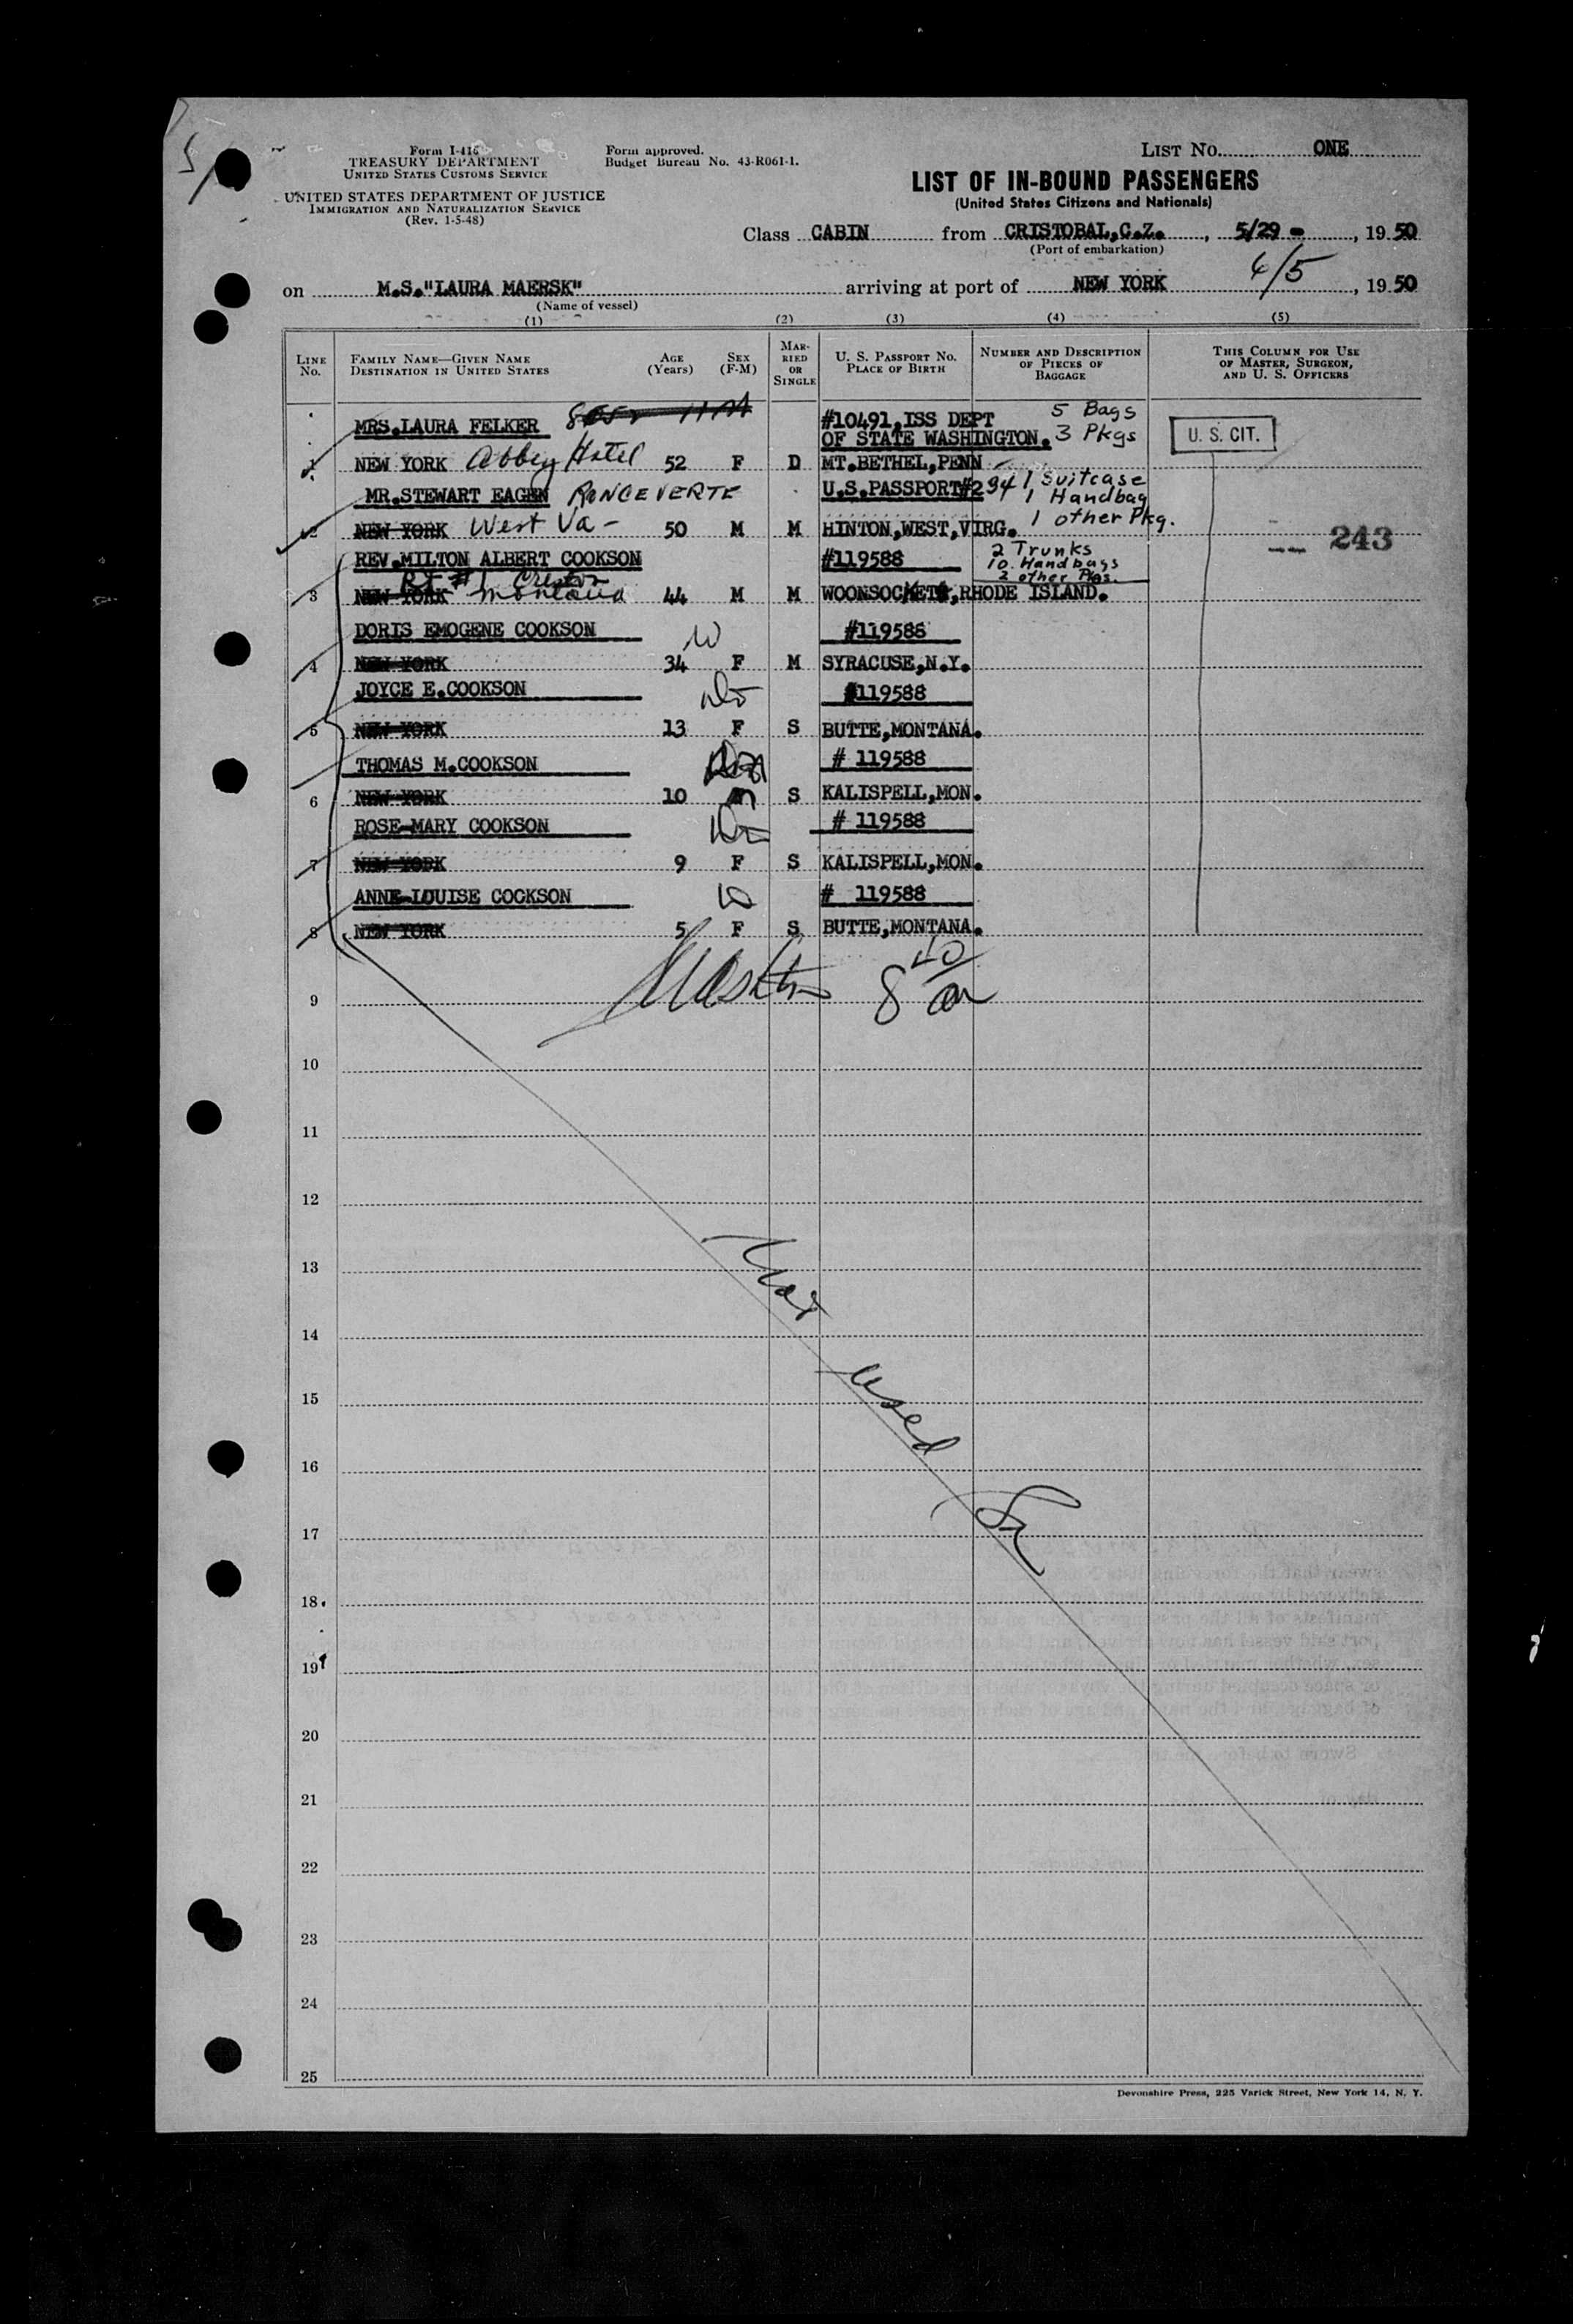 Form I-416
TREASURY DEPARTMENT
UNITED STATES CUSTOMS SERVICE
UNITED STATES DEPARTMENT OF JUSTICE
IMMIGRATION AND NATURALIZATION SERVICE
(Rev. 1-5-48)
Form approved.
Budget Bureau No. 43-R061-1.
LIST NO. ONE
LIST OF IN-BOUND PASSENGERS
(United States Citizens and Nationals)
Class CABIN from CRISTOBAL,C.Z., 5/29 - , 19 50
(Port of embarkation)
on M.S."LAURA MAERSK" arriving at port of NEW YORK 6/5, 19 50
(Name of vessel)
(1) (2) (3) (4) (5)
LINE NO. FAMILY NAME—GIVEN NAME DESTINATION IN UNITED STATES AGE (Years) SEX (F-M) MARRIED OR SINGLE U. S. PASSPORT NO. PLACE OF BIRTH NUMBER AND DESCRIPTION OF PIECES OF BAGGAGE THIS COLUMN FOR USE OF MASTER, SURGEON, AND U. S. OFFICERS
MRS.LAURA FELKER #10491,ISS DEPT 5 Bags
OF STATE WASHINGTON. 3 Pkgs U. S. CIT.
1 NEW YORK Abbey Hotel 52 F D MT.BETHEL,PENN
MR.STEWART EAGEN RONCEVERTE U.S.PASSPORT#294 1 Suitcase
1 Handbag
2 NEW YORK West Va - 50 M M HINTON,WEST,VIRG. 1 other Pkg.
243
REV.MILTON ALBERT COOKSON #119588 2 Trunks
10 Handbags
Rt #1 Creston 2 other Pkgs.
3 NEW YORK Montana 44 M M WOONSOCKET,RHODE ISLAND.
DORIS EMOGENE COOKSON #119588
4 NEW YORK 34 F M SYRACUSE,N.Y.
JOYCE E.COOKSON #119588
5 NEW YORK 13 F S BUTTE,MONTANA.
THOMAS M.COOKSON # 119588
6 NEW YORK 10 m S KALISPELL,MON.
ROSE-MARY COOKSON # 119588
7 NEW YORK 9 F S KALISPELL,MON.
ANNE-LOUISE COOKSON # 119588
8 NEW YORK 5 F S BUTTE,MONTANA.
8 40
am
9
10
11
12
13
Not
14
used
15
16
17
18
19
20
21
22
23
24
25
Devonshire Press, 225 Varick Street, New York 14, N. Y.